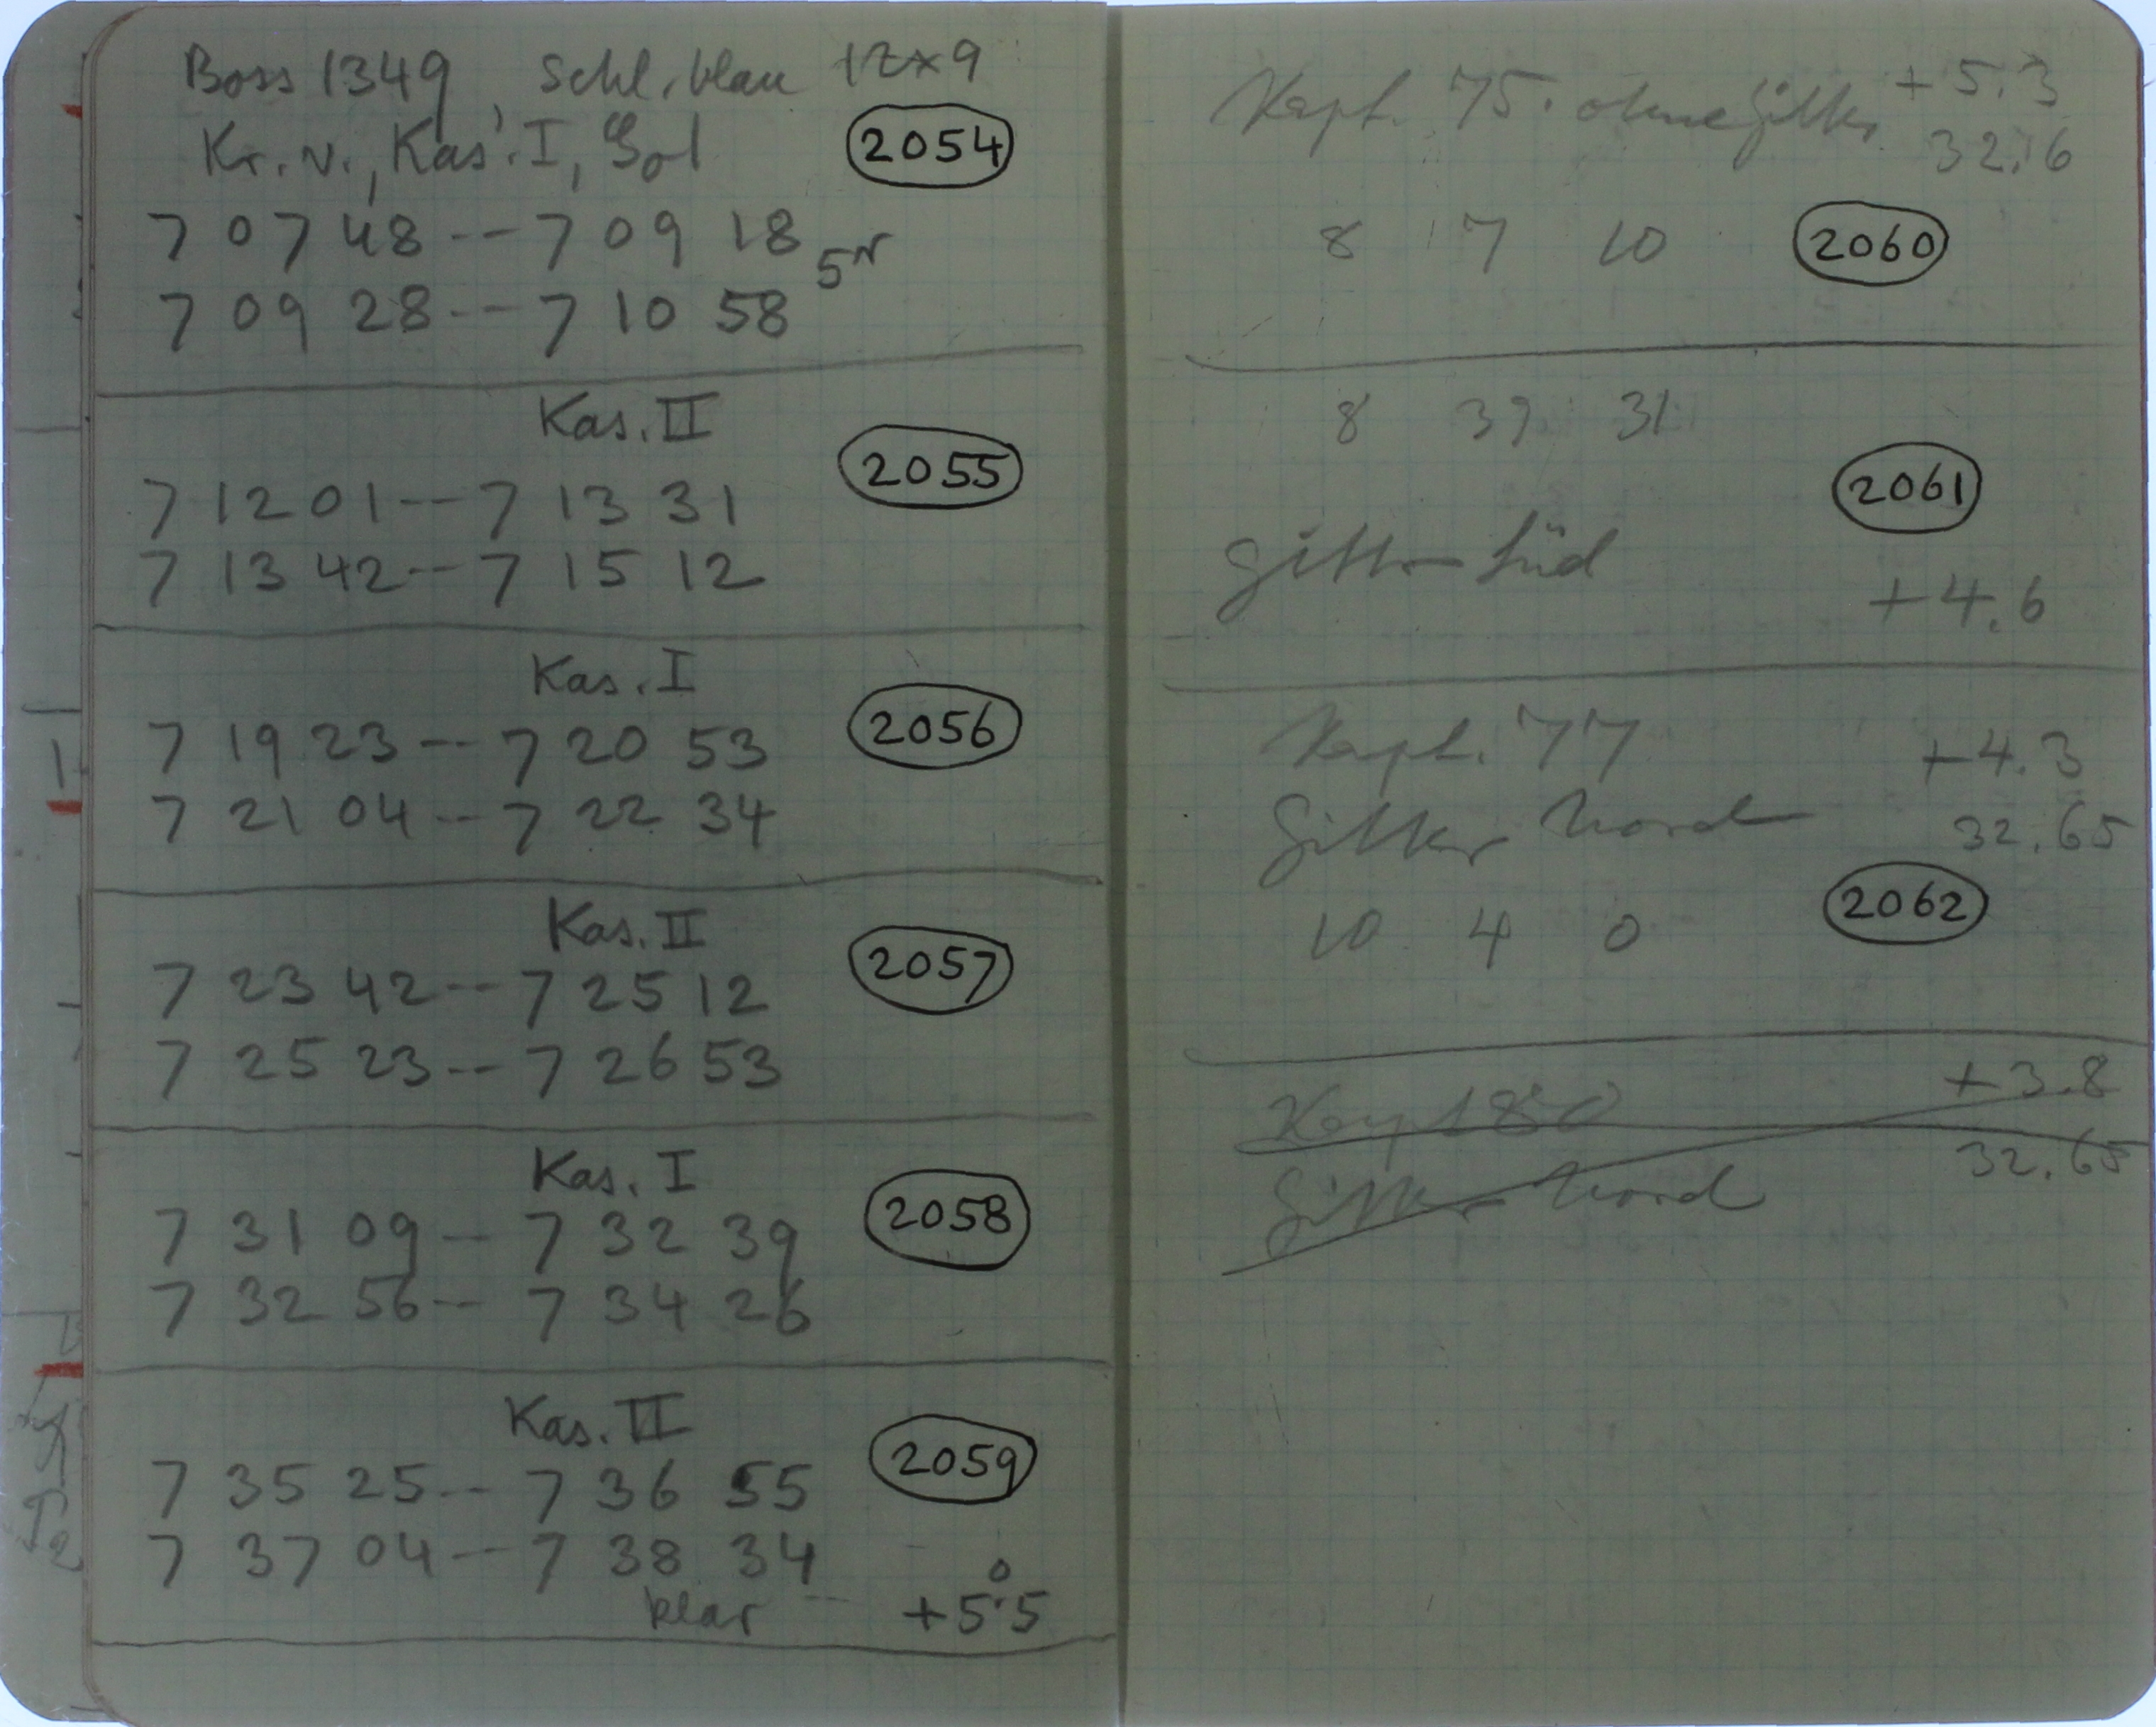 Boss 1349, Schl. blau 12×9
Kr. v., Kas. I, Sol 2054
7 07 48 -- 7 09 18 5r
7 09 28 -- 7 10 58
Kas. II
2055
7 12 01 -- 7 13 31
7 13 42 -- 7 15 12
Kas. I
2056
7 19 23 -- 7 20 53
7 21 04 -- 7 22 34
Kas. II
2057
7 23 42 -- 7 25 12
7 25 23 -- 7 26 53
Kas. I
2058
7 31 09 -- 7 32 39
7 32 56 -- 7 34 26
Kas. II
2059
7 35 25 -- 7 36 55
7 37 04 -- 7 38 34
klar +5°.5
Kapt. 75. ohne Gitter +5.3
32.6
8 7 10 2060
8 39 31
2061
Gitter Süd
+4.6
Kapt. 77 +4.3
Gitter Nord 32.65
10 4 0 2062
Kapt 80 +3.8
Gitter Nord 32.65